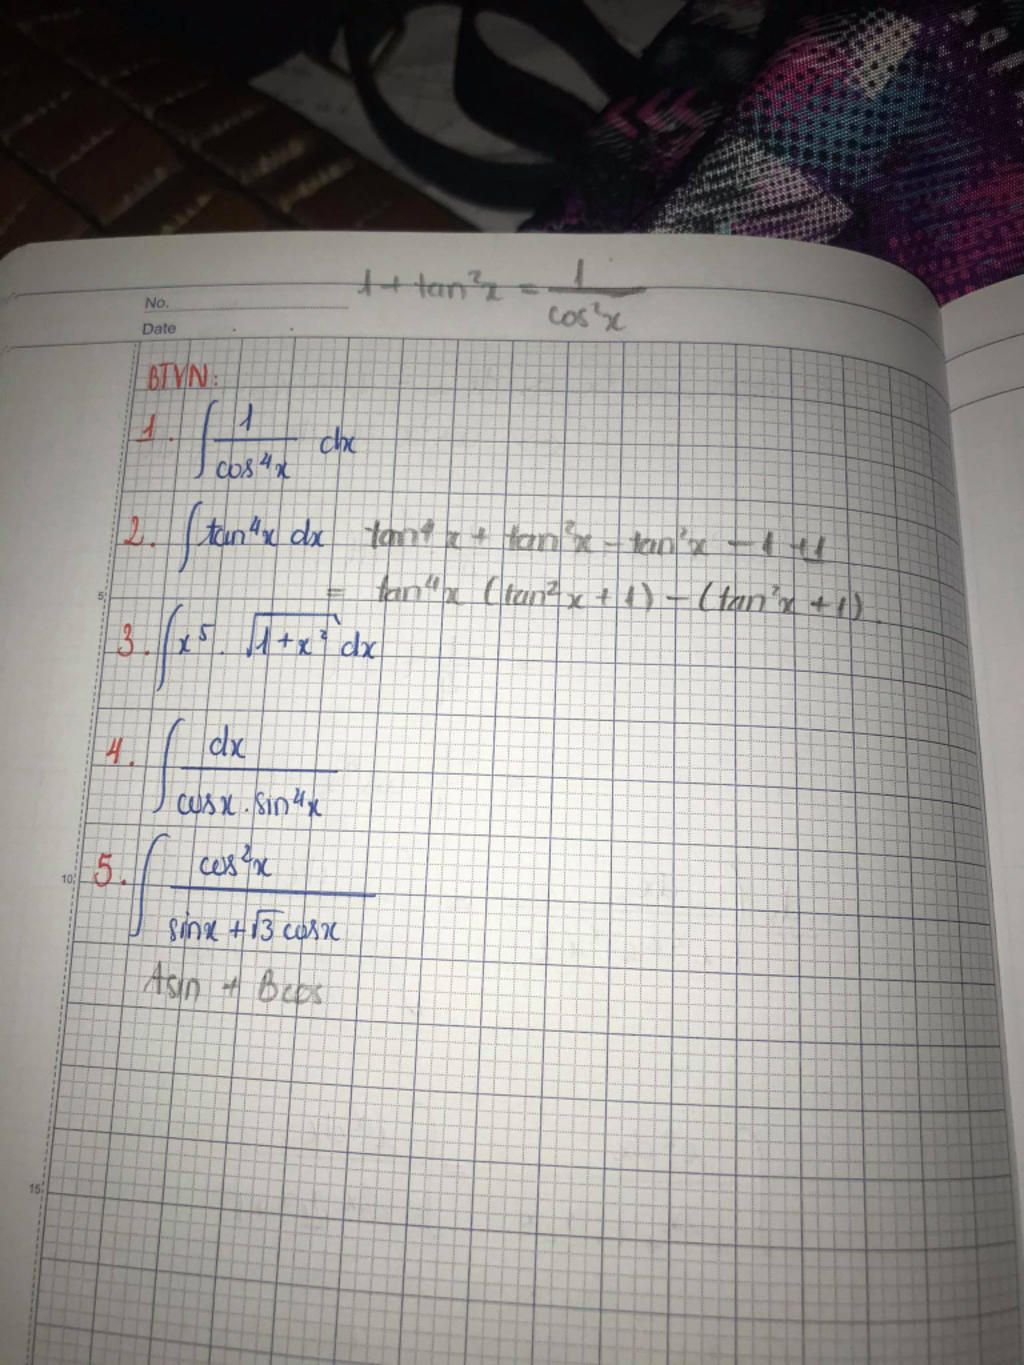 1 + tan²x = 1/cos²x
No.
Date
BTVN:
1. ∫ 1/cos⁴x dx
2. ∫ tan⁴x dx tan⁴x + tan²x - tan²x - 1 + 1
= tan⁴x (tan²x + 1) - (tan²x + 1)
5
3. ∫ x⁵. √(1+x²) dx
4. ∫ dx/(cosx . sin⁴x)
10
5. ∫ cos²x/(sinx + √3 cosx)
Asin + Bcos
15